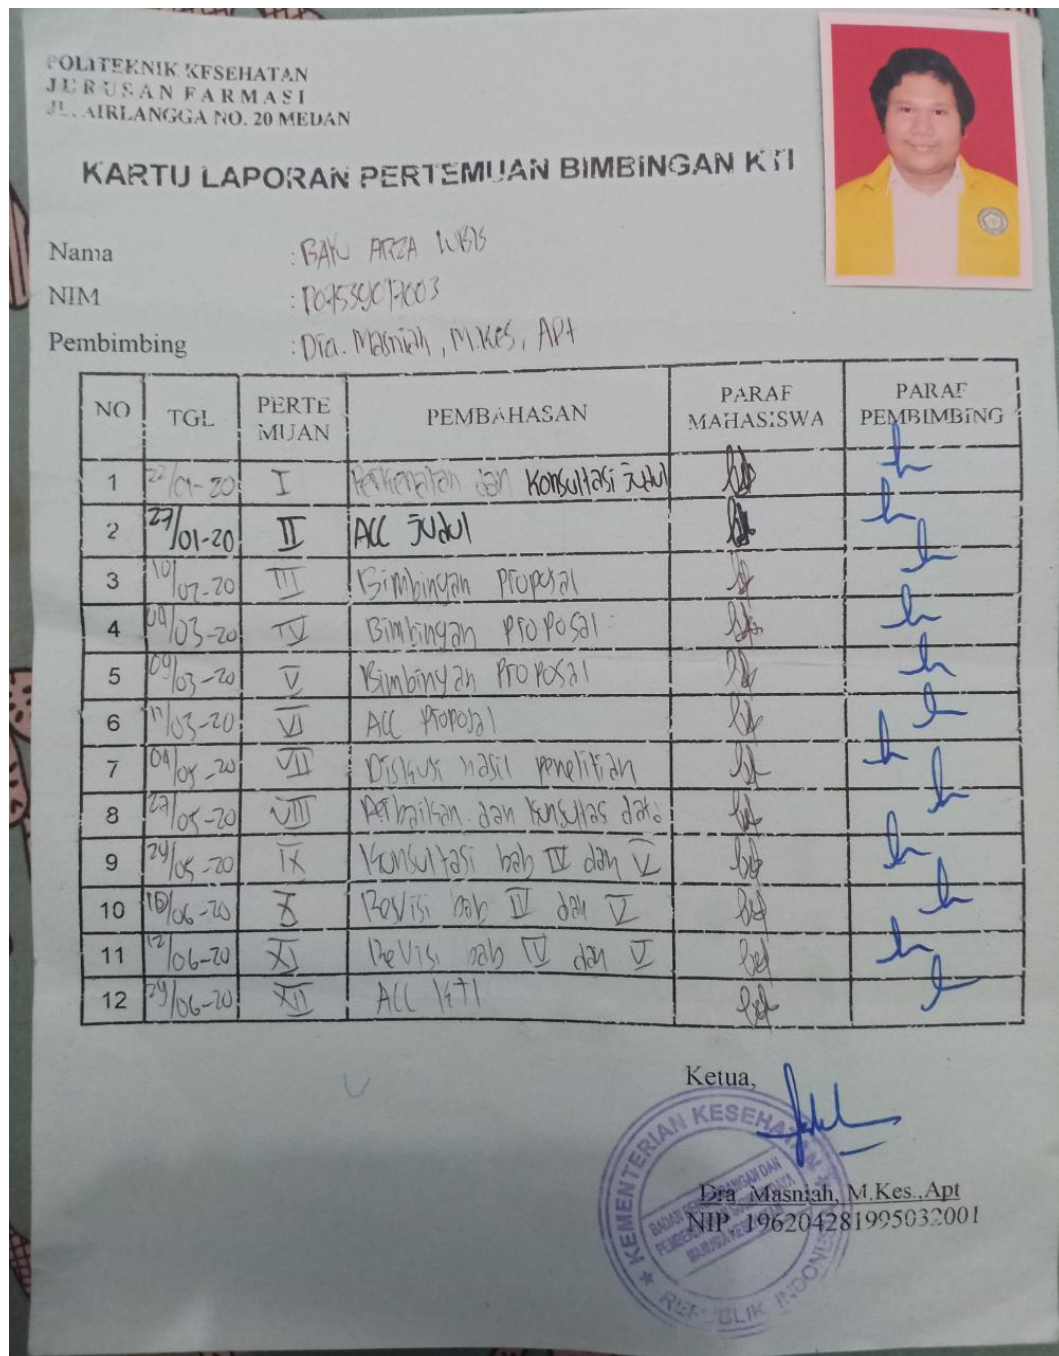 POLITEKNIK KESEHATAN
JURUSAN FARMASI
JL. AIRLANGGA NO. 20 MEDAN
KARTU LAPORAN PERTEMUAN BIMBINGAN KTI
Nama : BAYU ARZA LUBIS
NIM : P07539017003
Pembimbing : Dra. Masniah, M.Kes, Apt
NO TGL PERTEMUAN PEMBAHASAN PARAF MAHASISWA PARAF PEMBIMBING
1 22/01-20 I Perkenalan dan Konsultasi Judul
2 27/01-20 II ACC Judul
3 10/02-20 III Bimbingan Proposal
4 /03-20 IV Bimbingan Proposal
5 09/03-20 V Bimbingan Proposal
6 11/03-20 VI ACC Proposal
7 04/05-20 VII Diskusi hasil penelitian
8 27/05-20 VIII Perbaikan dan konsultas data
9 29/05-20 IX Konsultasi bab IV dan V
10 10/06-20 X Revisi bab IV dan V
11 12/06-20 XI Revisi bab IV dan V
12 29/06-20 XII ACC KTI
Ketua,
KEMENTERIAN KESEHATAN
REPUBLIK INDONESIA
Dra. Masniah, M.Kes.,Apt
NIP 196204281995032001